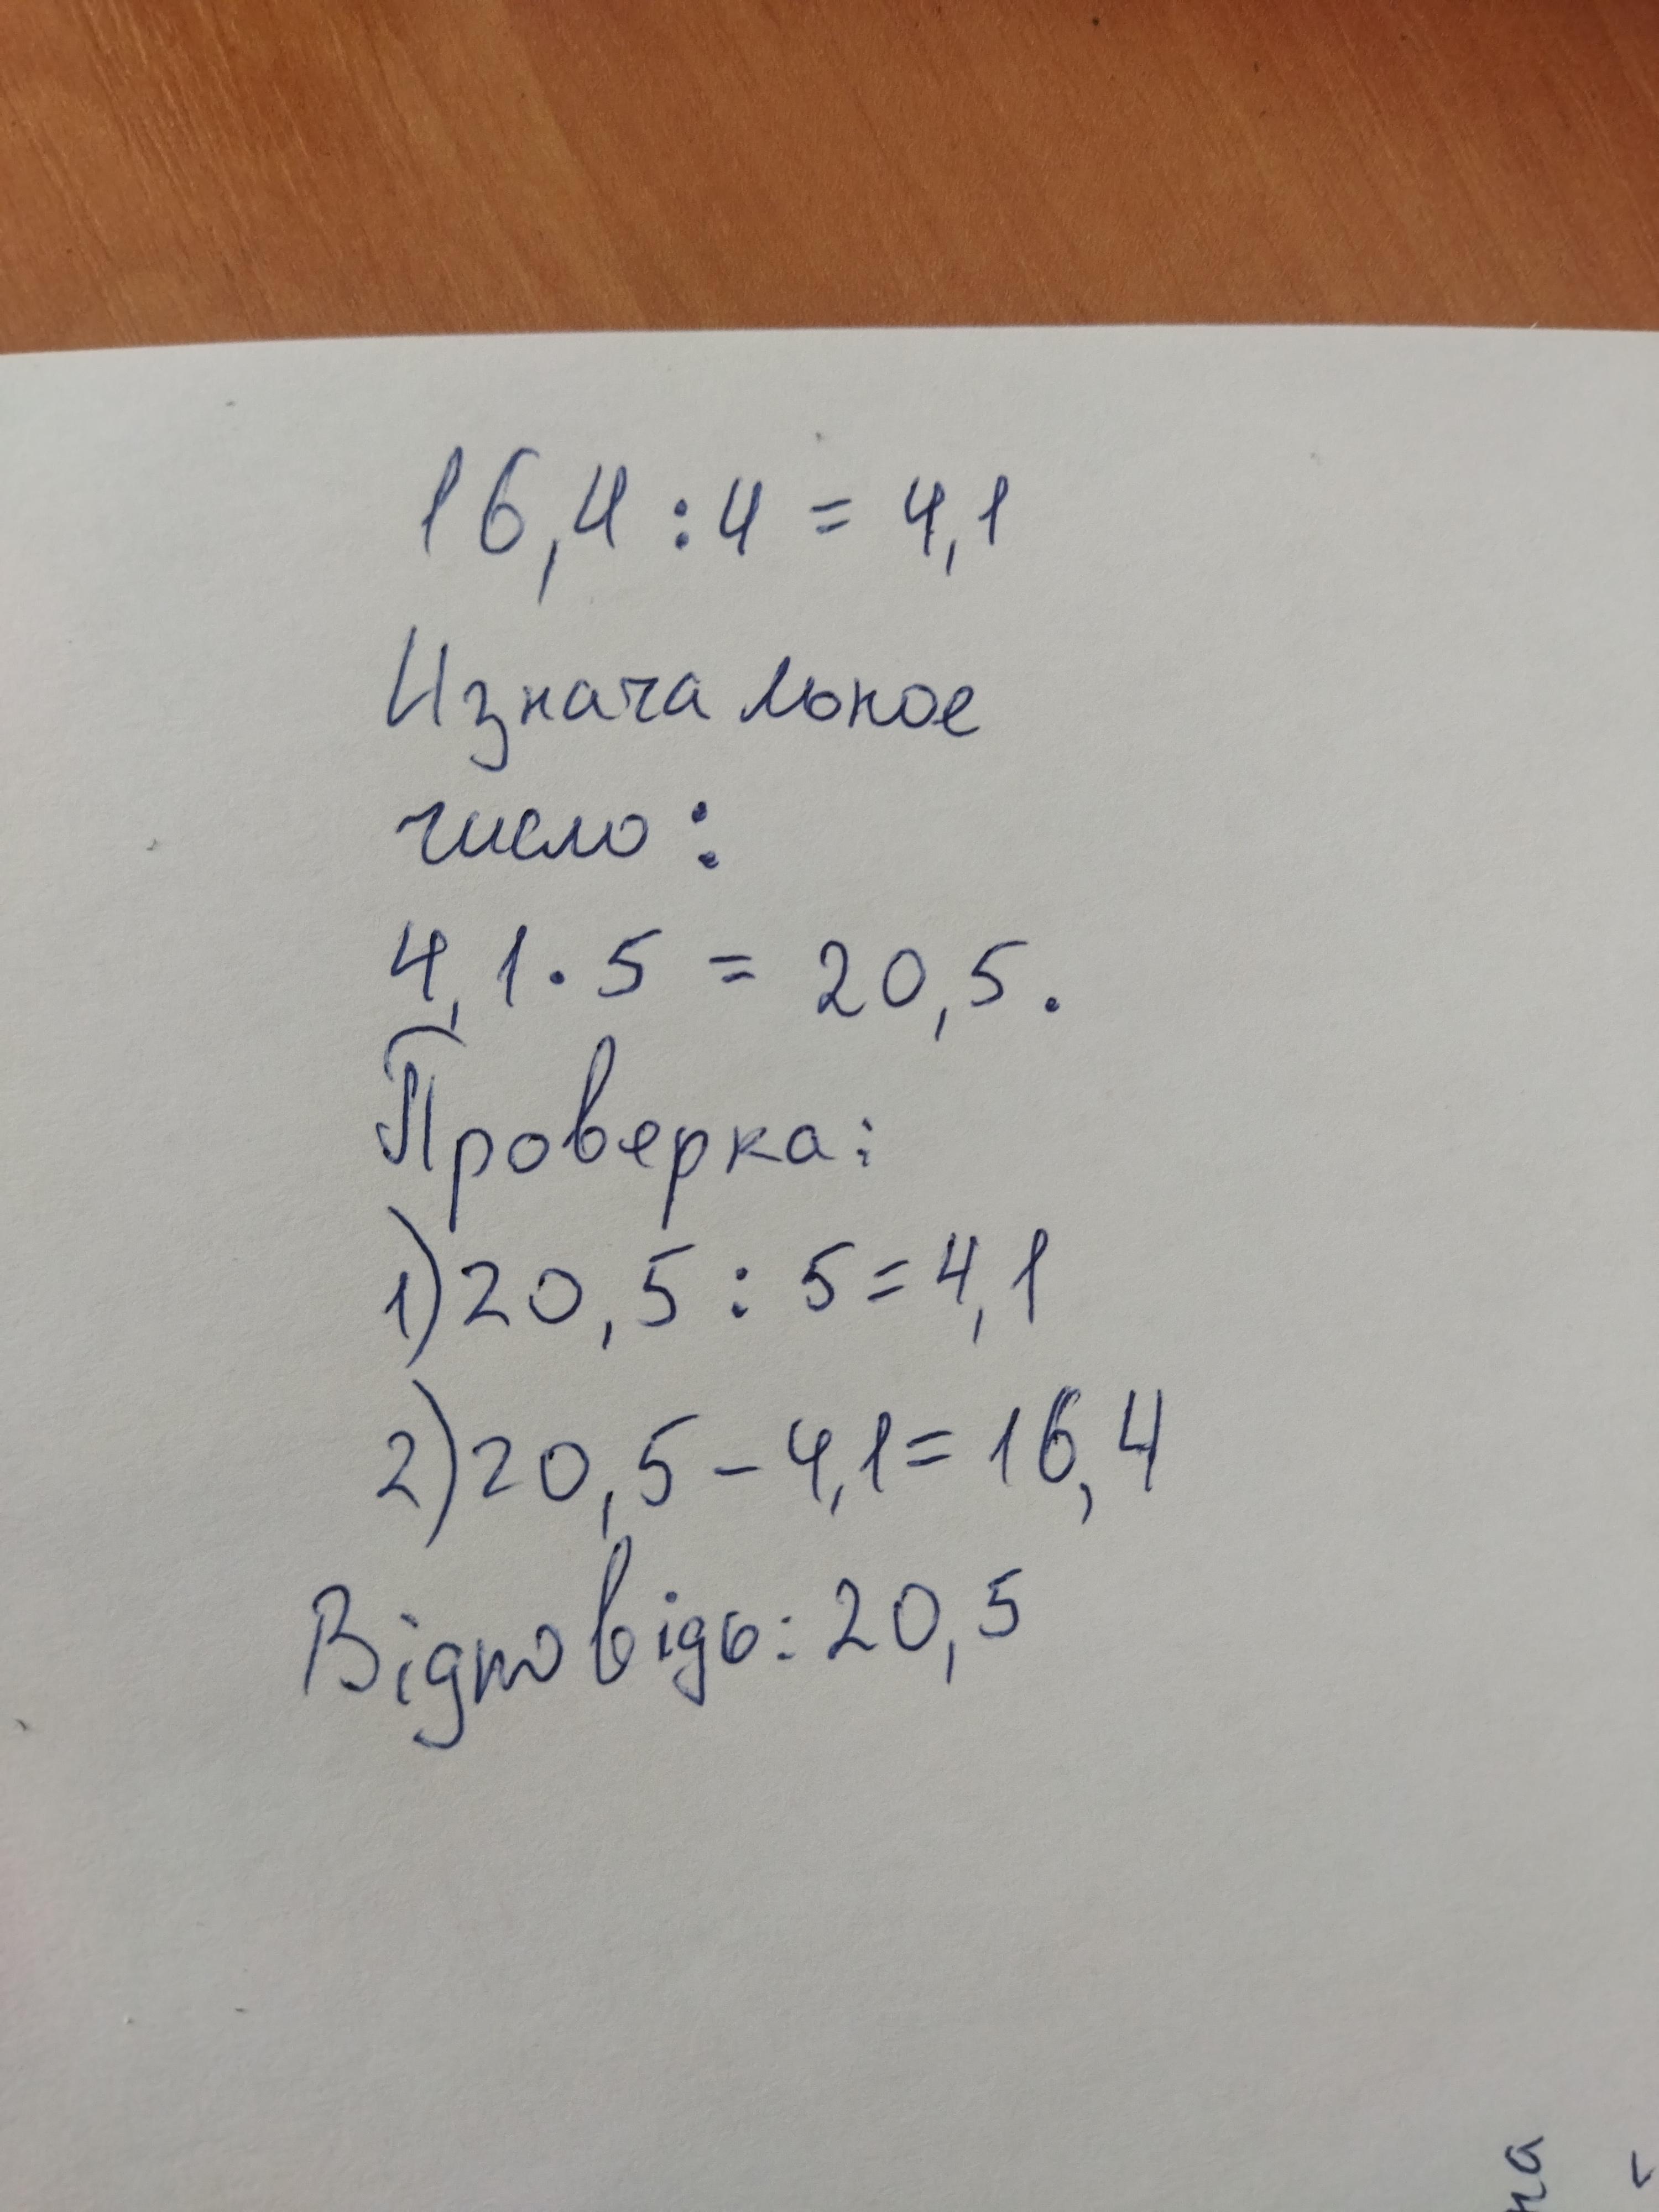 16,4 : 4 = 4,1
Изначальное
число:
4,1 · 5 = 20,5.
Проверка:
1) 20,5 : 5 = 4,1
2) 20,5 – 4,1 = 16,4
Відповідь: 20,5
на